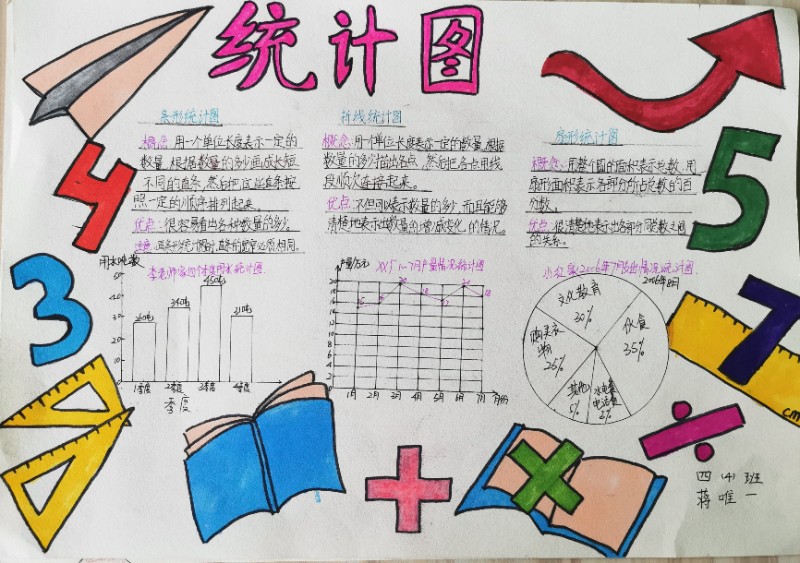 统计图
条形统计图
概念:用一个单位长度表示一定的
数量,根据数量的多少画成长短
不同的直条,然后把这些直条按
照一定的顺序排列起来。
优点:很容易看出各种数量的多少。
注意:画条形统计图时,直条的宽窄必须相同。
折线统计图
概念:用一个单位长度表示一定的数量,根据
数量的多少描出各点,然后把各点用线
段顺次连接起来。
优点:不但可以表示数量的多少,而且能够
清楚地表示出数量的增减变化的情况。
扇形统计图
概念:用整个圆的面积表示总数,用
扇形面积表示各部分所占总数的百
分数。
优点:很清楚地表示出各部分同总数之间
的关系。
用水吨数
50
40
30
20
10
0
1季度
2季度
3季度
4季度
季度
产量/万元
XX厂1~7月产量情况统计图
1月
2月
3月
4月
5月
6月
7月
月份
2006年8月
文化教育
30%
伙食
35%
购买衣
物
25%
其他
5%
水电费
4
3
5
7
cm
四(4)班
蒋唯一